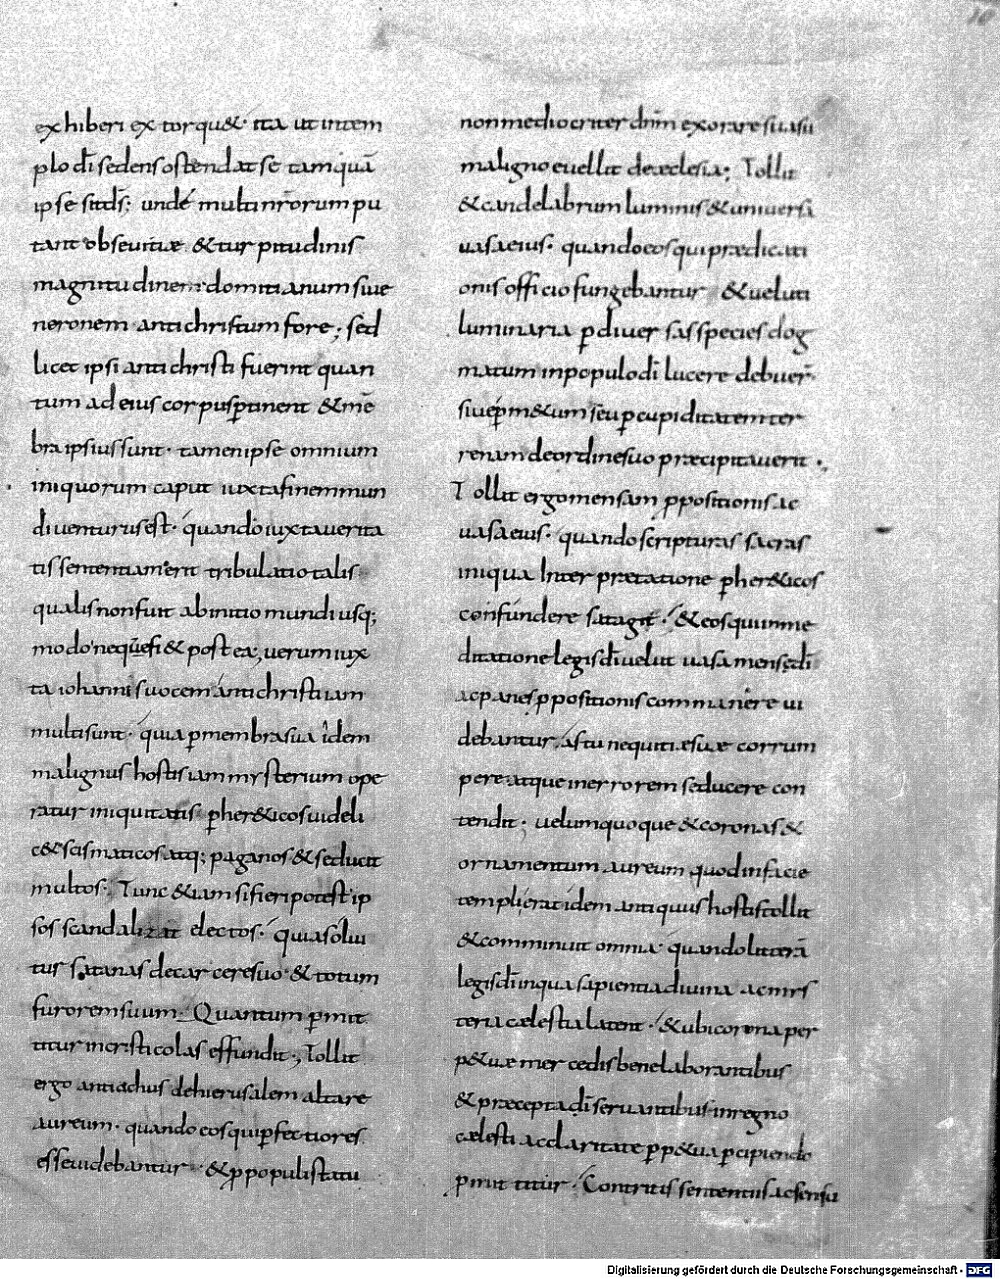 10
exhiberi extorqu&· ita ut intem
plo dī sedens ostendat se tamquā
ipse sit ds̄; unde multi nr̄orum pu
tant ob sevitiæ & turpitudinis
magnitudinem domitianum sive
neronem antichristum fore; sed
licet ipsi antichristi fuerint quan
tum ad eius corpus ꝑtinent & mē
bra ipsius sunt· tamen ipse omnium
iniquorum caput iuxta finem mun
di venturus est· quando iuxta verita
tis sententiam erit tribulatio talis
qualis non fuit ab initio mundi usq;
modo neq; fi& postea, verum iux
ta iohannis vocem antichristi iam
multi sunt· quia ꝑ membra sua idem
malignus hostis iam mysterium ope
ratur iniquitatis ꝑ her&icos videli
c& scismaticos atq; paganos & seducit
multos; Tunc &iam si fieri potest ip
sos scandalizat electos· quia solvi
tur satanas de carcere suo & totum
furorem suum· Quantum ꝑmit
titur in cristicolas effundit; Tollit
ergo antiochus de hierusalem altare
aureum· quando eos qui ꝑfectiores
esse videbantur· & ꝓ populi statu
non mediocriter dn̄m exorare suasu
maligno evellit de æclesia; Tollit
& candelabrum luminis & universa
vasa eius· quando eos qui prædicati
onis officio fungebantur & veluti
luminaria ꝑ diversas species dog
matum in populo dī lucere debuer̄
sive ꝑ m&um seu ꝑ cupiditatem ter
renam de ordine suo præcipitaverit·,
Tollit ergo mensam ꝓpositionis ac
vasa eius· quando scripturas sacras
iniqua Interpretatione ꝑ her&icos
confundere satagit· & eos qui in me
ditatione legis dī velut vasa mensæ dī
ac panes ꝓpositionis commanere vi
debantur astu nequitiæ suæ corrum
pere atque in errorem seducere con
tendit; velum quoque & coronas &
ornamentum aureum quod in facie
templi erat idem antiquus hostis tollit
& comminuit omnia· quando litterā
legis dī in qua sapientia divina ac mis
teria cælestia latent· & ubi corona per
p&uæ mercedis bene laborantibus
& præcepta dī servantibus in regno
cælesti ac claritate ꝑp&ua ꝑcipiendo
ꝓmittitur· Contritis sententiis ac sensu
Digitalisierung gefördert durch die Deutsche Forschungsgemeinschaft - DFG